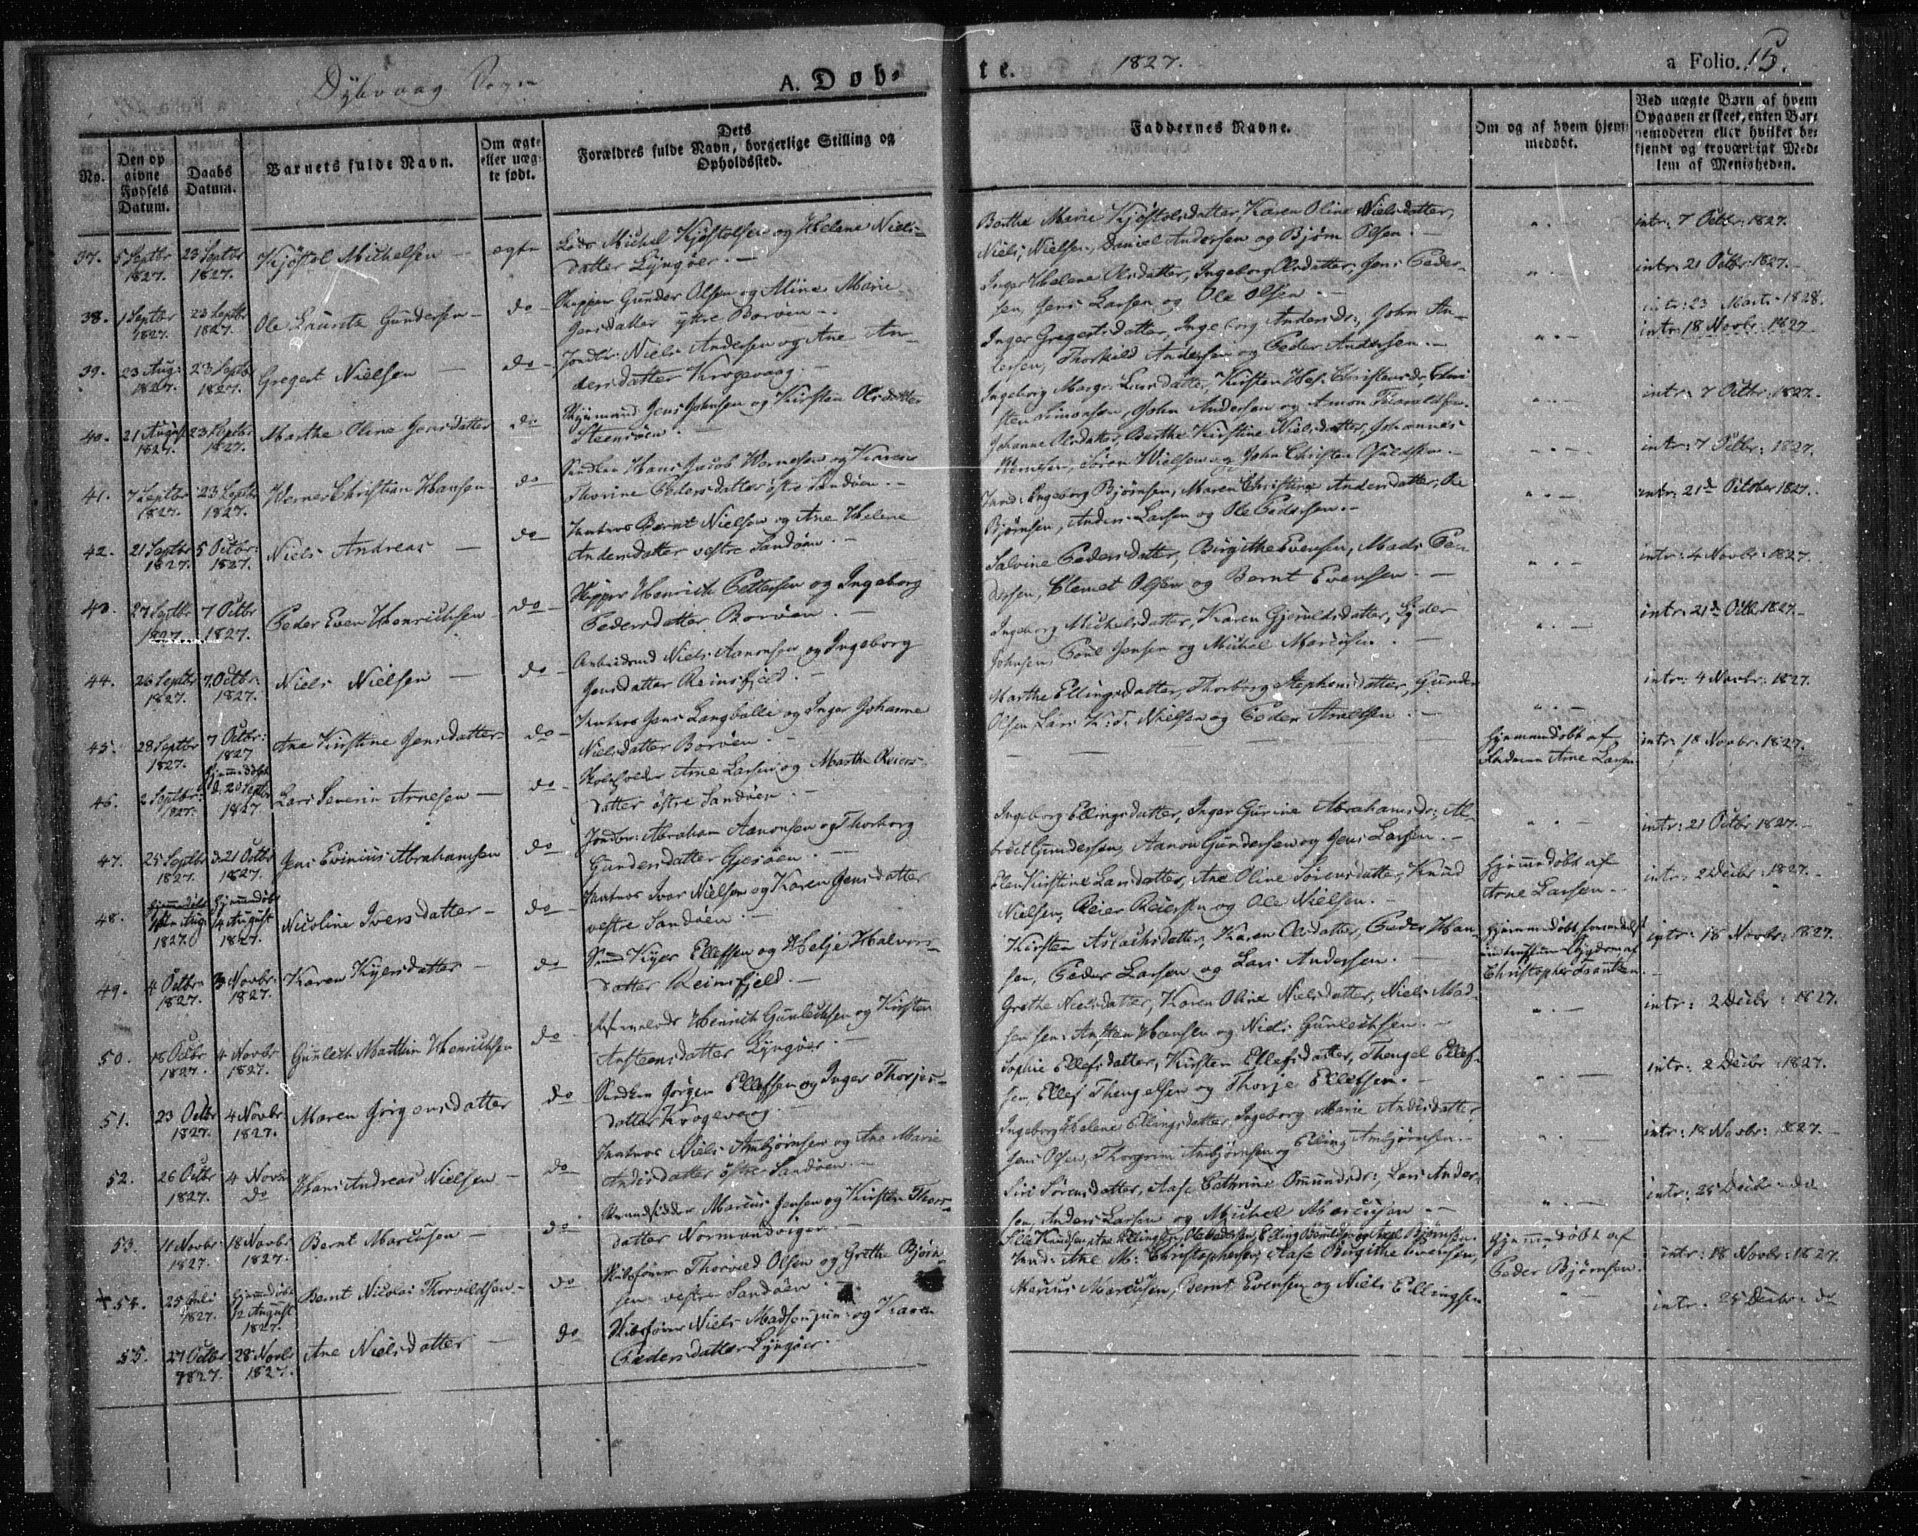 Dybvaag Sogn
A. Døb-
te.
1827.
a Folio 15.
No.
Den op givne Fødsels Datum.
Daabs Datum.
Barnets fulde Navn.
Om ægte eller uæg- te født.
Dets
Forældres fulde Navn, borgerlige Stilling og
Opholdssted.
Faddernes Navne.
Om og af hvem hjem- medøbt.
Ved uægte Børn af hvem
Opgaven er skeet, enten Bar-
nemoderen eller hvilket be-
kjendt og troværdigt Med-
lem af Menigheden.
37. 5 Septbr 1827. 23 Septbr 1827. Kjøstol Michelsen — ægte
Lods Michel Kjøstolsen og Helene Niels-
datter Lyngøer. —
Berthe Marie Kjøstolsdatter, Karen Oline Nielsdatter,
Niels Nielsen, Daniel Andersen og Bjørn Olsen. —
intr: 7 Octbr: 1827.
38. 1 Septbr 1827. 23 Septbr 1827. Ole Lauritz Gundersen — do —
Skipper Gunder Olsen og Aline Marie
Jensdatter ytre Borøen. —
Inger Helene Olsdatter, Ingeborg Olsdatter, Jens Peder-
sen, Jens Larsen og Ole Olsen. —
intr: 21 Octbr: 1827.
intr: 23 Marts 1828.
39. 23 Aug: 1827. 23 Septbr 1827. Gregert Nielsen — do —
Jordbr: Niels Andersen og Ane An-
dersdatter Krogevaag. —
Inger Gregertsdatter, Ingeborg Andersdr:, John An-
dersen, Thorkild Andersen og Peder Andersen. —
intr: 18 Novbr: 1827.
40. 21 August 1827. 23 Septbr 1827. Marthe Oline Jensdatter do
Jens Johnsen og Kirsten Olsdatter
Steensøen. —
Ingeborg Margr: Larsdatter, Kirsten Christensdr:,
Simonsen, John Andersen og
intr: 7 Octbr: 1827.
41. 7 Septbr 1827. 23 Septbr 1827. Werner Christian Hansen do —
Hans Jacob Wernersen og Karen
Thorine Pedersdatter østre Sandøen. —
Johanne Olsdatter, Berthe Kirstine Nielsdatter, Johannes
Søren Nielsen og John Christen
intr: 7 Octbr: 1827.
42. 21 Septbr 1827. 5 Octbr: 1827. Niels Andreas — do —
Matros Bernt Nielsen og Ane Helene
Andersdatter vestre Sandøen. —
Ingeborg Bjørnsen, Maren Christine Andersdatter, Ole
Bjørnsen, Anders Larsen og Ole Pedersen. —
intr: 21de October 1827.
43. 27 Septbr 1827. 7 Octbr 1827. Peder Even Henrichsen — do —
Skipper Henrich Pettersen og Ingeborg
Pedersdatter Borøen. —
Salvine Pedersdatter, Birgithe Evensen, Mads Pe-
dersen, Clemet Olsen og Bernt Evensen. —
intr: 4 Novbr: 1827.
44. 26 Septbr 1827. 7 Octbr: 1827. Niels Nielsen — do —
Arbeidsmd Niels Aanonsen og Ingeborg
Jensdatter Reinsfjeld. —
Ingeborg Michelsdatter, Karen Gjeruldsdatter, Lyder
Johnsen, Poul Jensen og Michel Marcusen. —
intr: 21de Octbr 1827.
45. 28 Septbr 1827. 7 Octbr: 1827 Ane Kirstine Jensdatter do —
Matros Jens Langballe og Inger Johanne
Nielsdatter Borøen. —
Marthe Ellingsdatter, Thorborg Stephensdatter, Gunder
Olsen, Lars K. T. Nielsen og Peder Arnesen. —
intr: 4 Novbr: 1827.
46. 2 Septbr: 1827. hjemmedøbt d. 20 Septbr 1827 Lars Severin Arnesen — do —
Skoleholder Arne Larsen og Marthe Reiers-
datter østre Sandøen. —
hjemmedøbt af
Faderen Arne Larsen
intr: 18 Novbr: 1827.
47. 25 Septbr 1827. d: 21 Octbr 1827. Jens Evinius Abrahamsen do —
Jordbr: Abraham Aanonsen og Thorborg
Gundersdatter Gjesøen. —
Ingeborg Ellingsdatter, Inger Gurine Abrahamsdr:, Al-
bret Gundersen, Aanon Gundersen og Jens Larsen. —
intr: 21 Octbr 1827. —
48. Aug: 1827. hjemmedøbt 14 August 1827. Nicoline Iversdatter — do —
Matros Ivar Nielsen og Karen Jensdatter
vestre Sandøen. —
Elen Kirstine Larsdatter, Ane Oline Sørensdatter, Knud
Nielsen, Reier Reiersen og Ole Nielsen. —
hjemmedøbt af
Arne Larsen. —
intr: 2 Decbr: 1827.
49. 4 Octbr: 1827. 3 Novbr: 1827. Karen Kyersdatter — do —
Kyer Ellefsen og Helje Halvors-
datter Reinsfjeld. —
Kirsten Aslachsdatter, Karen Olsdatter, Peder Han-
sen, Peder Larsen og Lars Andersen. —
hjemmedøbt
Christopher Frantzen.
intr: 18 Novbr: 1827.
50. 18 Octbr 1827. 4 Novbr: 1827. Gunlech Marthin Henrichsen do —
Henrich Gunlechsen og Kirsten
Anstensdatter Lyngøer. —
Grethe Nielsdatter, Karen Oline Nielsdatter, Niels Mad-
sen sen: Ansten Hansen og Niels Gunlechsen. —
intr: 2 Decbr: 1827.
51. 23 Octbr 1827. 4 Novbr 1827. Maren Jørgensdatter do —
Jørgen Ellefsen og Inger Thorjes-
datter Krogevaag. —
Sophie Ellefsdatter, Kirsten Ellefsdatter, Thengel Ellef-
sen, Ellef Thengelsen og Thorje Ellefsen. —
intr: 2 Decbr: 1827.
52. 26 Octbr 1827. 4 Novbr do Hans Andreas Nielsen — do —
Matros Niels Anbjørnsen og Ane Marie
Andersdatter østre Sandøen. —
Ingeborg Helene Ellingsdatter, Ingeborg Marie Andersdatter
Jens Olsen, Thorgrim Anbjørnsen og Elling Anbjørnsen. —
intr: 18 Novbr: 1827. —
53. 11 Novbr: 1827. 18 Novbr: 1827. Bernt Marcusen — do —
Strandsidder Marcus Jensen og Kirsten Thors-
datter Normandvigen. —
Siri Sørensdatter, Aase Cathrine Omundsdr:, Lars Ander-
sen, Anders Larsen og Michel Marcusen —
intr: 25 Decbr — do
+ 54. 25 Juli 1827. hjemmedøbt 12 August 1827. Bernt Nicolai Thorvildsen — do
Skibsfører Thorvild Olsen og Grethe Bjørn-
sen vestre Sandøen
hjemmedøbt af
Peder Bjørnsen.
intr: 18 Novbr: 1827.
55. 27 Octbr 1827. 28 Novbr 1827. Ane Nielsdatter — do —
Skibsfører Niels Madsen jun: og Karen
Pedersdatter Lyngøer. —
Ane M: Christophersen, Aase Birgithe Evensen,
Marcus Marcusen, Bernt Evensen og Niels Ellingsen
intr: 25 Decbr: do